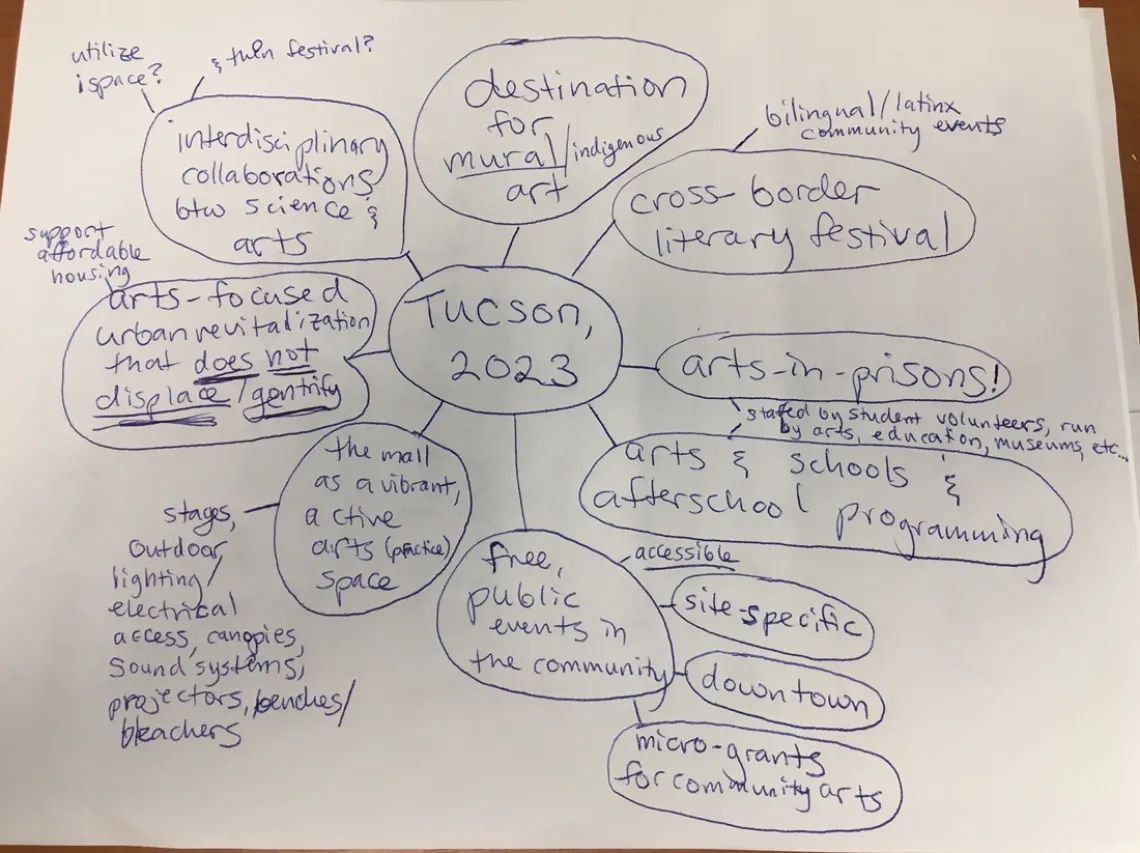 utilize
ispace?
& then festival?
interdisciplinary
collaborations
btw science &
arts
destination
for
mural/indigenous
art
bilingual/latinx
community events
cross-border
literary festival
support
affordable
housing
arts-focused
urban revitalization
that does not
displace/gentrify
Tucson,
2023
arts-in-prisons!
staffed by student volunteers, run
by arts, education, museums, etc...
arts & schools &
afterschool programming
the mall
as a vibrant,
active
arts (practice)
space
stages,
outdoor
lighting/
electrical
access, canopies,
sound systems,
projectors, benches/
bleachers
free,
public
events in
the community
accessible
site-specific
downtown
micro-grants
for community arts